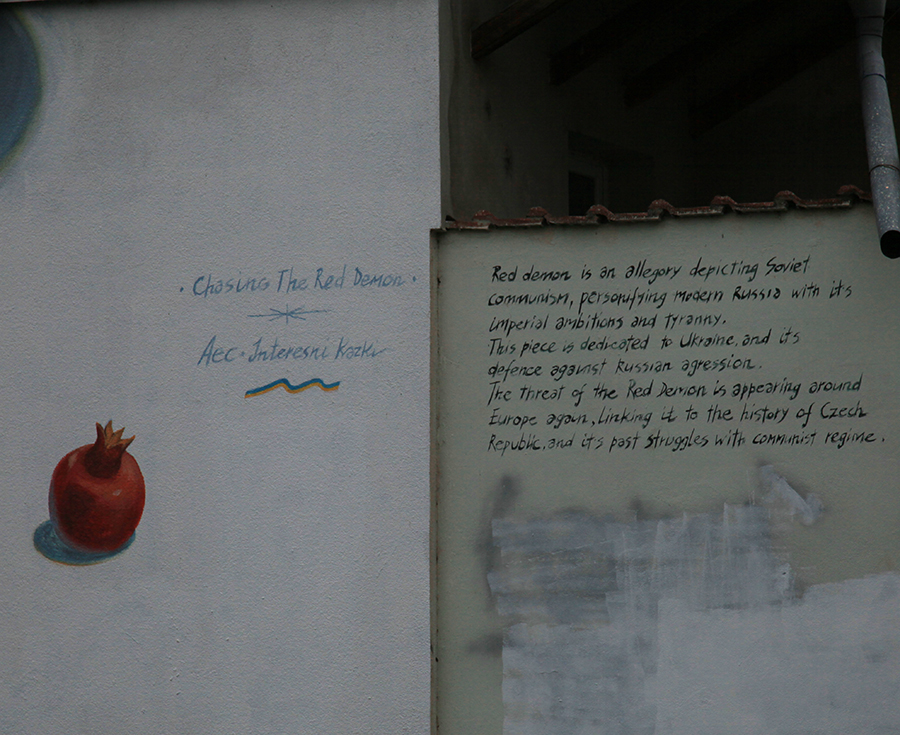 · Chasing The Red Demon ·
Aec · Interesni Kazki
Red demon is an allegory depicting Soviet
communism, personifying modern Russia with it's
imperial ambitions and tyranny.
This piece is dedicated to Ukraine, and it's
defence against Russian agression.
The threat of the Red Demon is appearing around
Europe again, linking it to the history of Czech
Republic, and it's past struggles with communist regime.